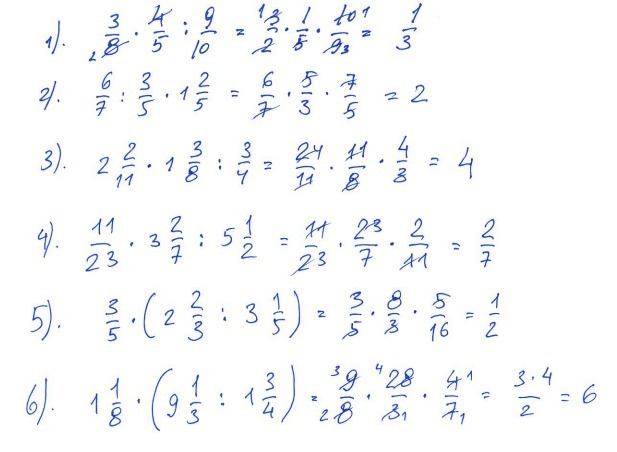 1). 3/8 · 4/5 : 9/10 = 3/2 · 1/5 · 10/9 = 1/3
2). 6/7 : 3/5 · 1 2/5 = 6/7 · 5/3 · 7/5 = 2
3). 2 2/11 · 1 3/8 : 3/4 = 24/11 · 11/8 · 4/3 = 4
4). 11/23 · 3 2/7 : 5 1/2 = 11/23 · 23/7 · 2/11 = 2/7
5). 3/5 · (2 2/3 : 3 1/5) = 3/5 · 8/3 · 5/16 = 1/2
6). 1 1/8 · (9 1/3 : 1 3/4) = 9/8 · 28/3 · 4/7 = 3·4/2 = 6